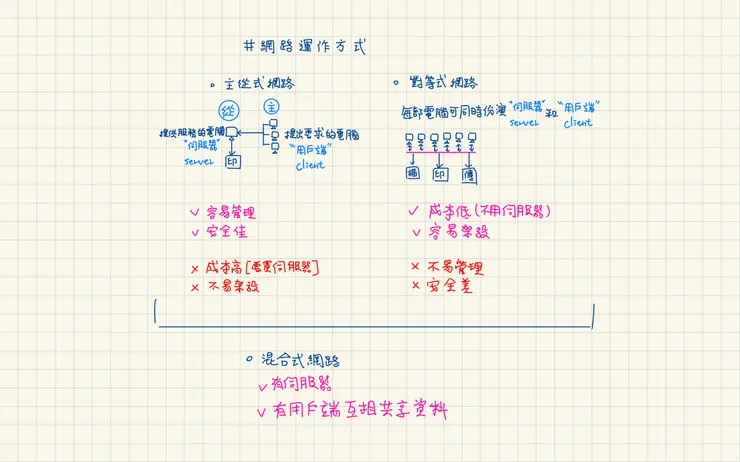 #網路運作方式
。主從式網路
從 主
提供服務的電腦 提出要求的電腦
"伺服器" "用戶端"
server client
印
✓ 容易管理
✓ 安全佳
✗ 成本高[要買伺服器]
✗ 不易架設
。對等式網路
每部電腦可同時份演"伺服器"和"用戶端"
server client
掃 印 傳
✓ 成本低(不用伺服器)
✓ 容易架設
✗ 不易管理
✗ 安全差
。混合式網路
✓ 有伺服器
✓ 有用戶端互相共享資料